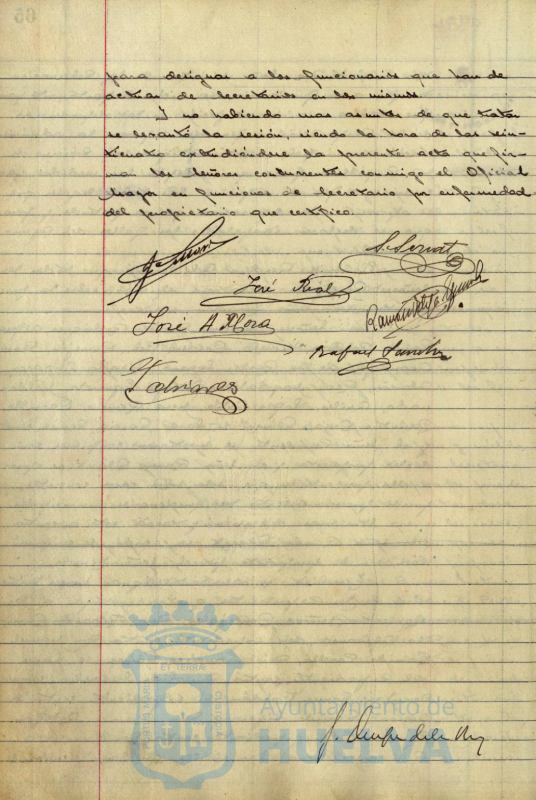 para designar a los funcionarios que han de
actuar de Secretarios en los mismos.
Y no habiendo mas asuntos de que tratar
se levantó la sesión, siendo la hora de las vein-
ticuatro extendiéndose la presente acta que fir-
man los Señores concurrentes conmigo el Oficial
Mayor en funciones de Secretario por enfermedad
del propietario que certifico.
José Real
José A Mora
Rafael Sanchez
ET TERRAE
PORTUS MARIS
CUSTODIA
Ayuntamiento de
HUELVA